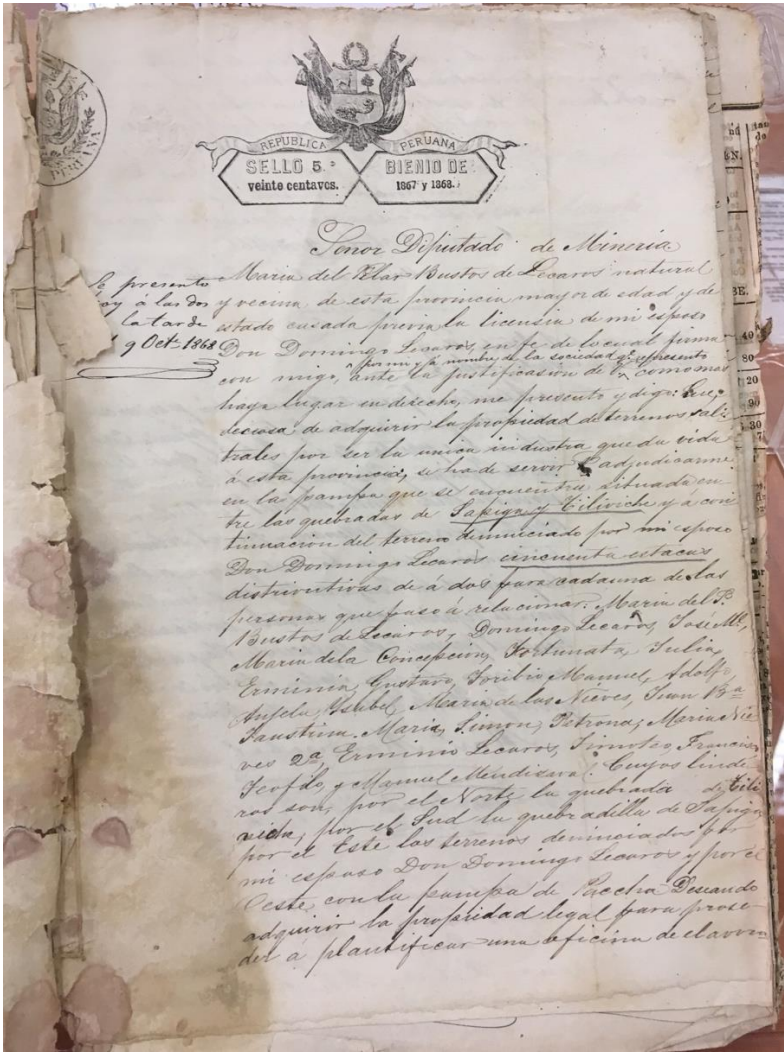 REPUBLICA PERUANA
SELLO 5.º BIENIO DE
veinte centavos. 1867 y 1868.
PERUANA
Señor Diputado de Mineria
Se presentó
hoy á las dos
la tarde
9 Octe 1868
Maria del Pilar Bustos de Lecaros natural
y vecina de esta provincia mayor de edad y de
estado casada previa la licensia de mi esposo
Don Domingo Lecaros, en fe de lo cual firma
por mi y á nombre de la sociedad qe represento
con migo, ante la justificasion de U. como mas
haya lugar en derecho, me presento y digo: Que
deciosa de adquirir la propiedad de terrenos sali-
trales por ser la unica industra que da vida
á esta provincia, se ha de servir U. adjudicarme
en la pampa que se encuentra situada en-
tre las quebradas de Sapiga y Tiliviche y á con-
tinuacion del terreno denunciado por mi esposo
Don Domingo Lecaros cincuenta estacas
distributivas de á dos para cada una de las
personas que paso á relacionar. Maria del P.
Bustos de Lecaros, Domingo Lecaros, José Ml.
Maria de la Concepcion, Fortunata, Julia,
Erminia, Gustavo, Toribio Manuel, Adolfo,
Anjela, Ysabel, Maria de las Nieves, Juan Bta
Faustina. Maria, Simon, Petrona, Maria Nie-
ves 2a, Erminio Lecaros, Timoteo, Francisco
Teofilo, y Manuel Mendisava. Cuyos linde-
ros son, por el Norte la quebrada de Tili-
viche, por el Sud la quebradilla de Sapiga,
por el Este los terrenos denunciados por
mi esposo Don Domingo Lecaros y por el
Oeste con la pampa de Paccha Deseando
adquirir la propiedad legal para prose-
der á plantificar una oficina de elavora